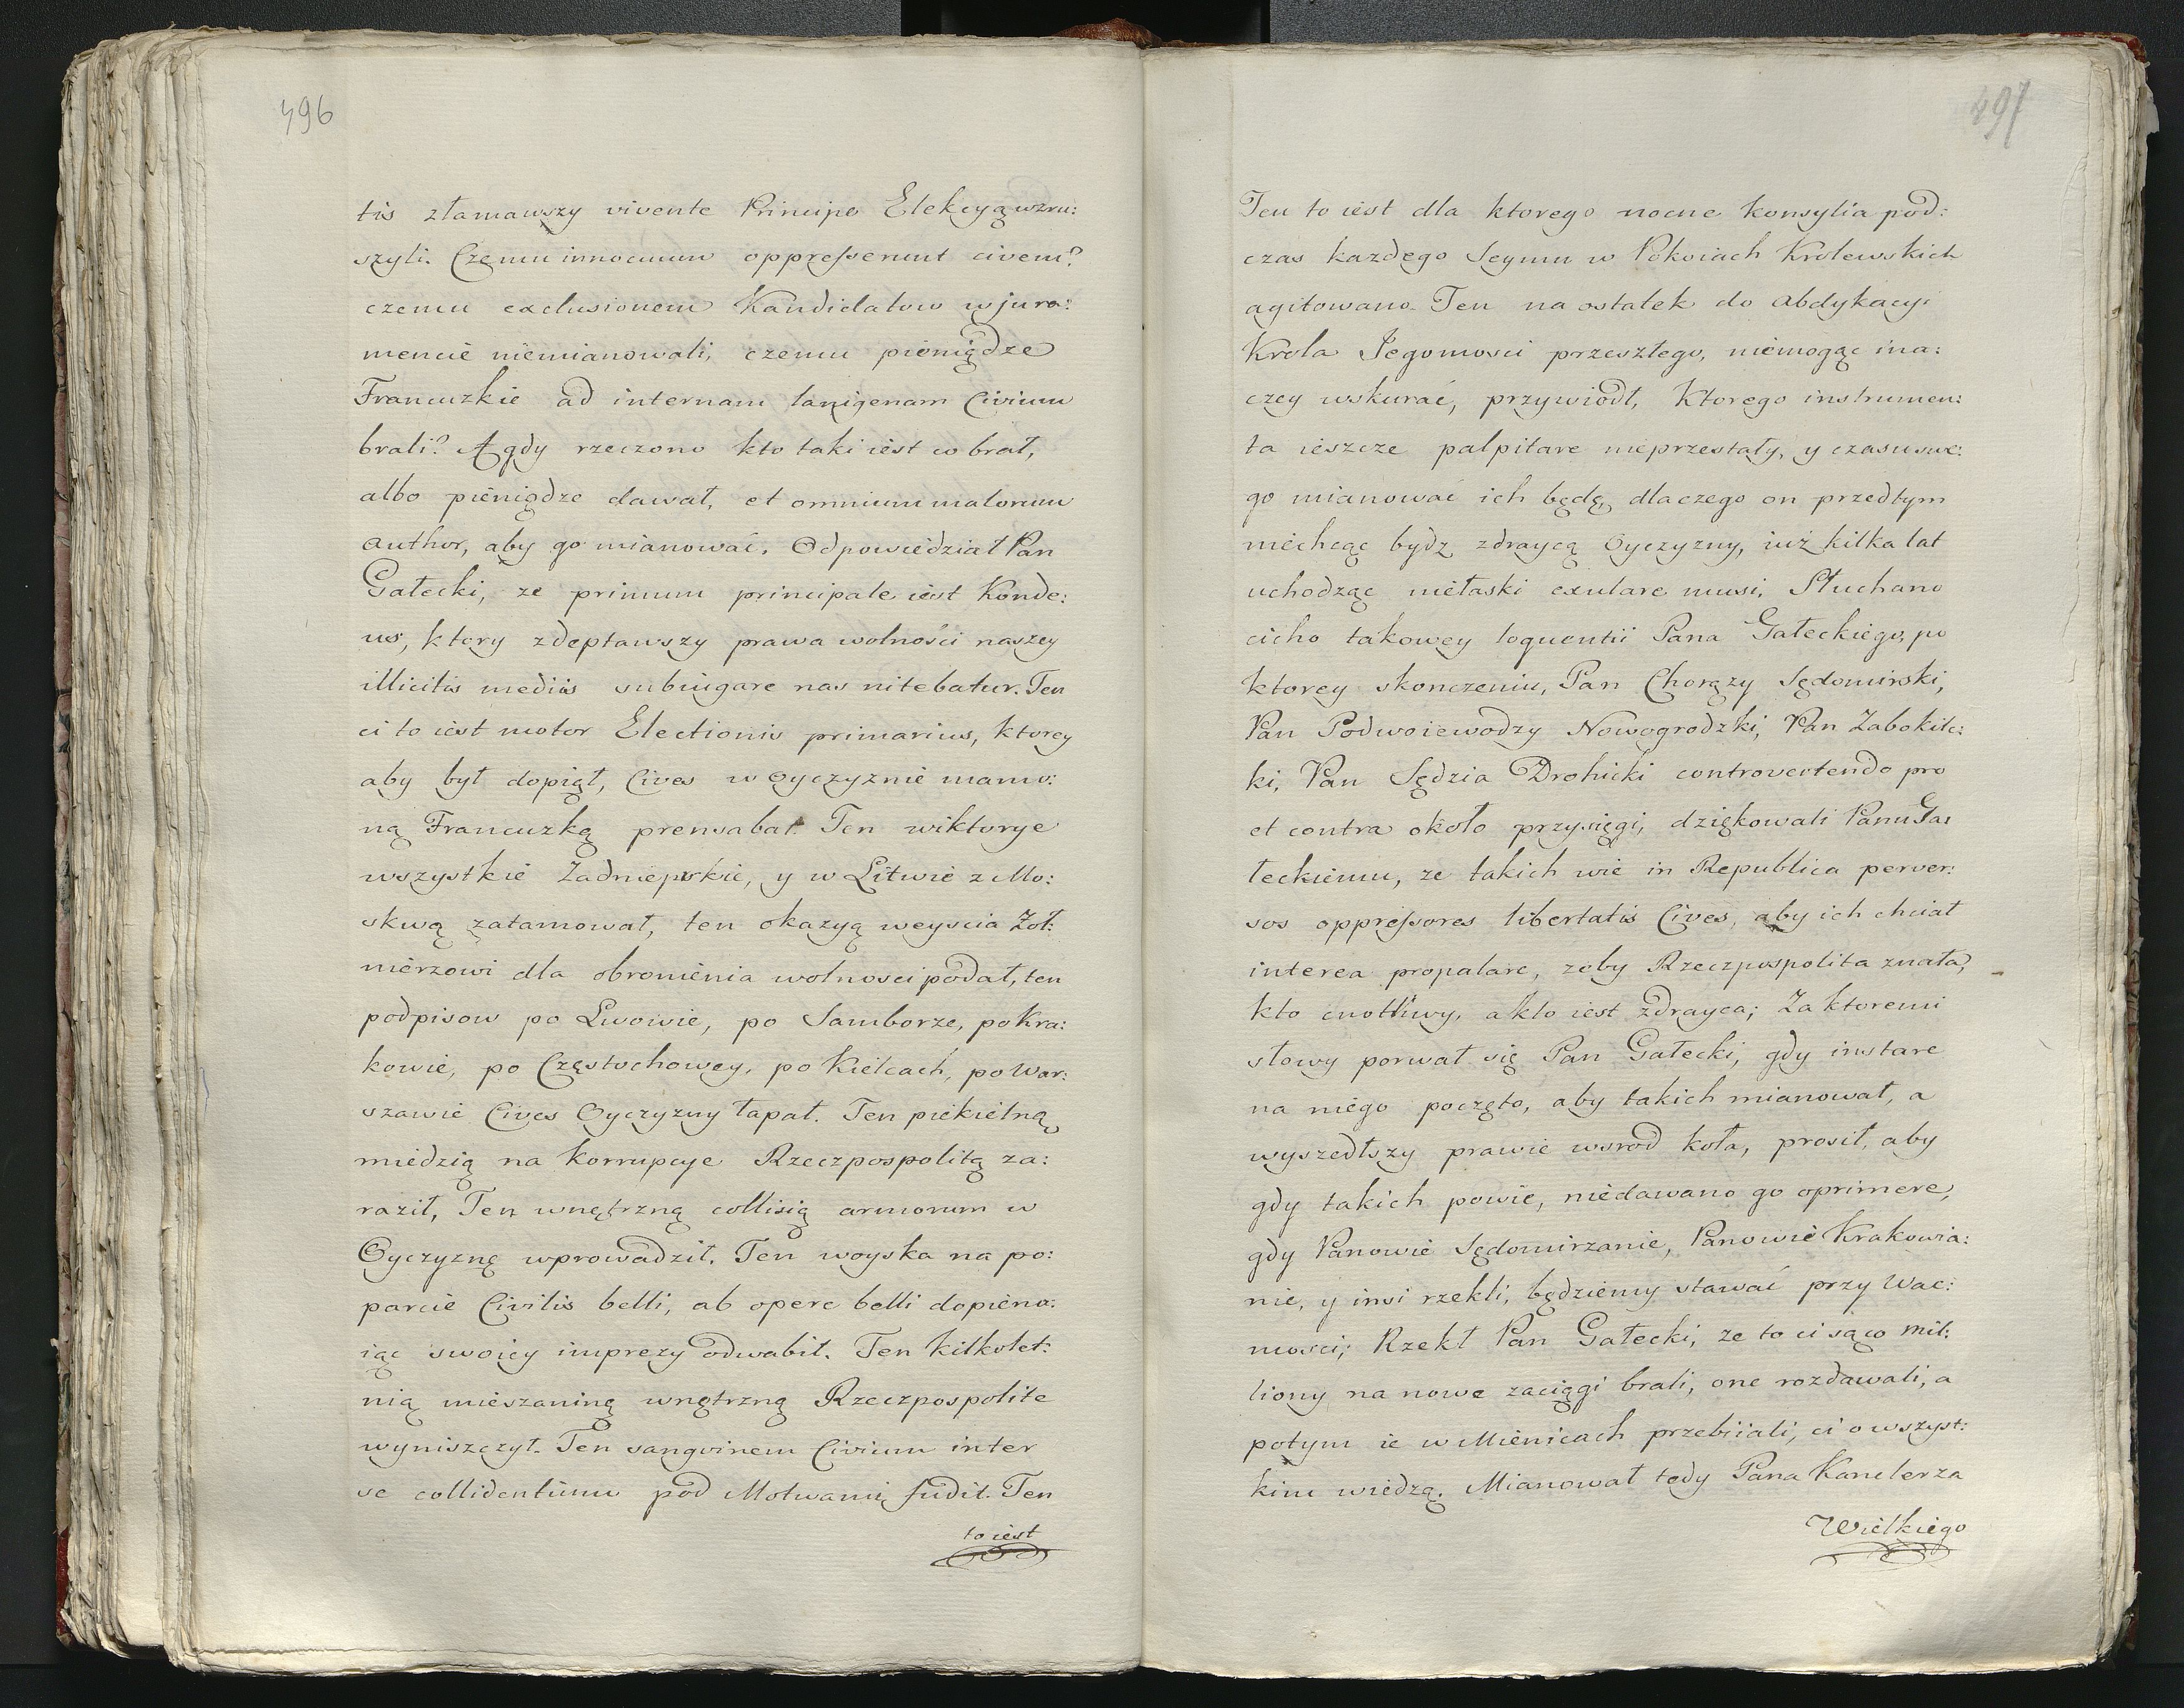 496
tis złamawszy vivente Principe Elekcyą wzru:
szyli. Czemu innocuum oppresserunt civem?
czemu exclusionem Kandidatow w jura:
mencie niemianowali, czemu pieniądze
Francuzkie ad internam lanigenam Civium
brali? A gdy rzeczono kto taki iest co brał,
albo pieniądze dawał, et omnium malorum
author, aby go mianować. Odpowiedział Pan
Gałecki, ze primum principale iest Konde:
us, ktory zdeptawszy prawa wolności naszey
illicitis mediis subiugare nas nitebatur. Ten
ci to iest motor Electionis primarius, ktorey
aby był dopiął, Cives w Oyczyznie mamo:
ną Francuzką prensabat. Ten wiktorye
wszystkie Zadnieprskie, y w Litwie z Mo:
skwą zatamował, ten okazyą weyscia Zoł:
nierzowi dla obronienia wolnosci podał, ten
podpisow po Lwowie, po Samborze, po Kra:
kowie, po Częstochowey, po Kielcach, po War:
szawie Cives Oyczyzny łapał. Ten piekielną
miedzią na korrupcye Rzeczpospolitą za:
raził, Ten wnętrzną collisią armorum w
Oyczyznę wprowadził. Ten woyska na po:
parcie Civilis belli, ab opere belli dopiena:
iąc swoiey imprezy odwabił. Ten kilkolet:
nią mieszaniną wnętrzną Rzeczpospolite
wyniszczył. Ten sangvinem Civium inter
se collidentium pod Motwami fudit. Ten
to iest
497
Ten to iest dla ktorego nocne konsylia pod:
czas kazdego Seymu w Pokoiach Krolewskich
agitowano. Ten na ostatek do abdykacyi
Krola Jegomosci przeszłego, niemogąc ina:
czey wskurać, przywiodł, Ktorego instrumen:
ta ieszcze palpitare nieprzestały, y czasu swe:
go mianować ich będę, dlaczego on przedtym
niechcąc bydz zdraycą Oyczyzny, iuż kilka lat
uchodząc niełaski exulare musi. Słuchano
cicho takowey loquentii Pana Gałeckiego, po
ktorey skonczeniu, Pan Chorązy Sędomirski,
Pan Podwoiewodzy Nowogrodzki, Pan Zabokilc:
ki, Pan Sędzia Drohicki controvertendo pro
et contra około przysięgi, dziękowali Panu Ga:
łeckiemu, ze takich wie in Republica perver:
sos oppressores libertatis Cives, aby ich chciał
interea propalare, zeby Rzeczpospolita znała,
kto cnotliwy, a kto iest zdrayca; Za ktoremi
słowy porwał się Pan Gałecki, gdy instare
na niego poczęto, aby takich mianował, a
wyszedłszy prawie wsrod koła, prosił, aby
gdy takich powie, niedawano go oprimere,
gdy Panowie Sędomirzanie, Panowie Krakowia:
nie, y insi rzekli, będziemy stawać przy Wac:
mosci; Rzekł Pan Gałecki, ze to ci są co mil:
liony na nowe zaciągi brali, one rozdawali, a
potym ie w Mienicach przebiiali, ci o wszyst:
kim wiedzą. Mianował tedy Pana Kanclerza
Wielkiego